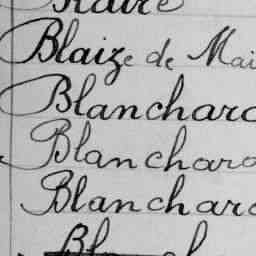 Blaize de Mai
Blanchard
Blanchard
Blanchard